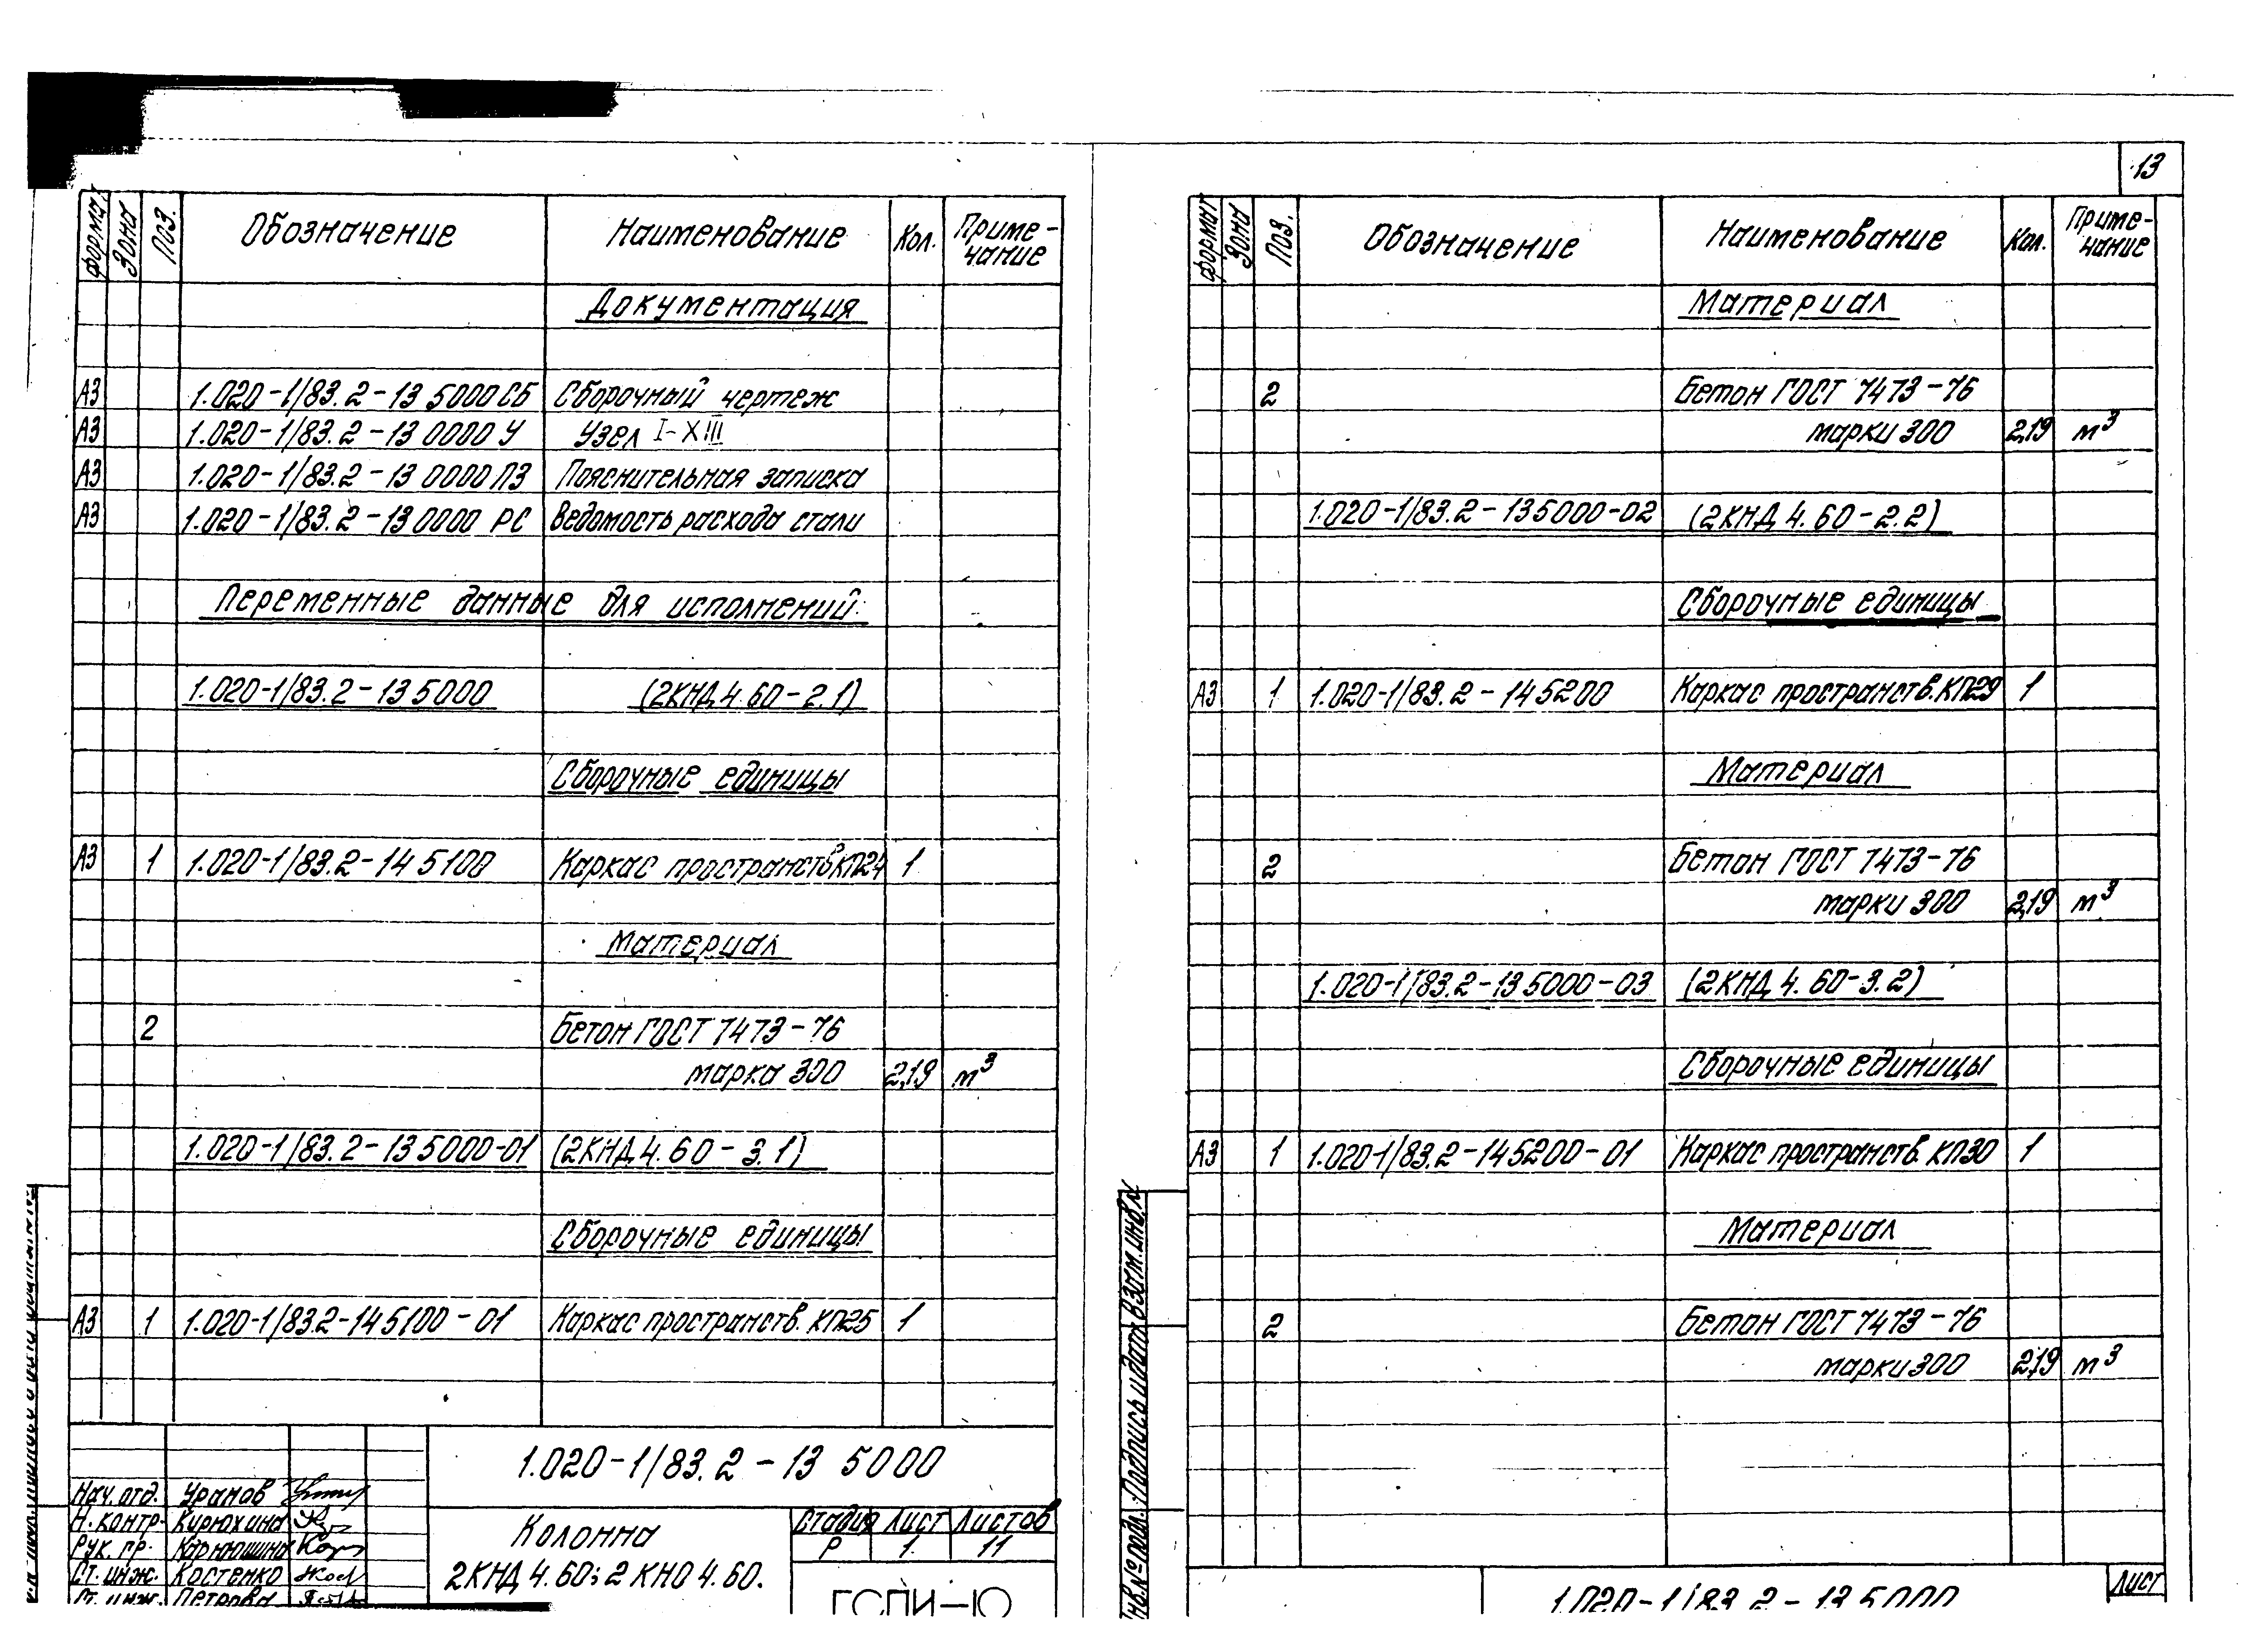 формат Зона Поз. Обозначение Наименование Кол. Приме-
чание
Документация
А3 1.020-1/83.2-13 5000СБ Сборочный чертеж
А3 1.020-1/83.2-13 0000 У Узел I-XIII
А3 1.020-1/83.2-13 0000 ПЗ Пояснительная записка
А3 1.020-1/83.2-13 0000 РС Ведомость расхода стали
Переменные данные для исполнений
1.020-1/83.2-13 5000 (2КНД 4.60-2.1)
Сборочные единицы
А3 1 1.020-1/83.2-14 5100 Каркас пространств КП24 1
Материал
2 Бетон ГОСТ 7473-76
марка 300 2,19 м³
1.020-1/83.2-13 5000-01 (2КНД 4.60-3.1)
Сборочные единицы
А3 1 1.020-1/83.2-14 5100-01 Каркас пространств. КП25 1
1.020-1/83.2-13 5000
Нач. отд. Уранов
Н. контр. Кирюхина
Рук. пр.
Ст. инж. Костенко
Ст. инж. Петрова
Колонна
2КНД 4.60; 2КНО 4.60.
Стадия Лист Листов
Р 1. 11
ГСПИ-10
13
формат Зона Поз. Обозначение Наименование Кол. Приме-
чание
Материал
2 Бетон ГОСТ 7473-76
марки 300 2,19 м³
1.020-1/83.2-13 5000-02 (2КНД 4.60-2.2)
Сборочные единицы
А3 1 1.020-1/83.2-14 5200 Каркас пространств. КП29 1
Материал
2 Бетон ГОСТ 7473-76
марки 300 2,19 м³
1.020-1/83.2-13 5000-03 (2КНД 4.60-3.2)
Сборочные единицы
А3 1 1.020-1/83.2-14 5200-01 Каркас пространств. КП30 1
Материал
2 Бетон ГОСТ 7473-76
марки 300 2,19 м³
Инв. № подл. Подпись и дата Взам. инв. №
1.020-1/83.2-13 5000
Лист